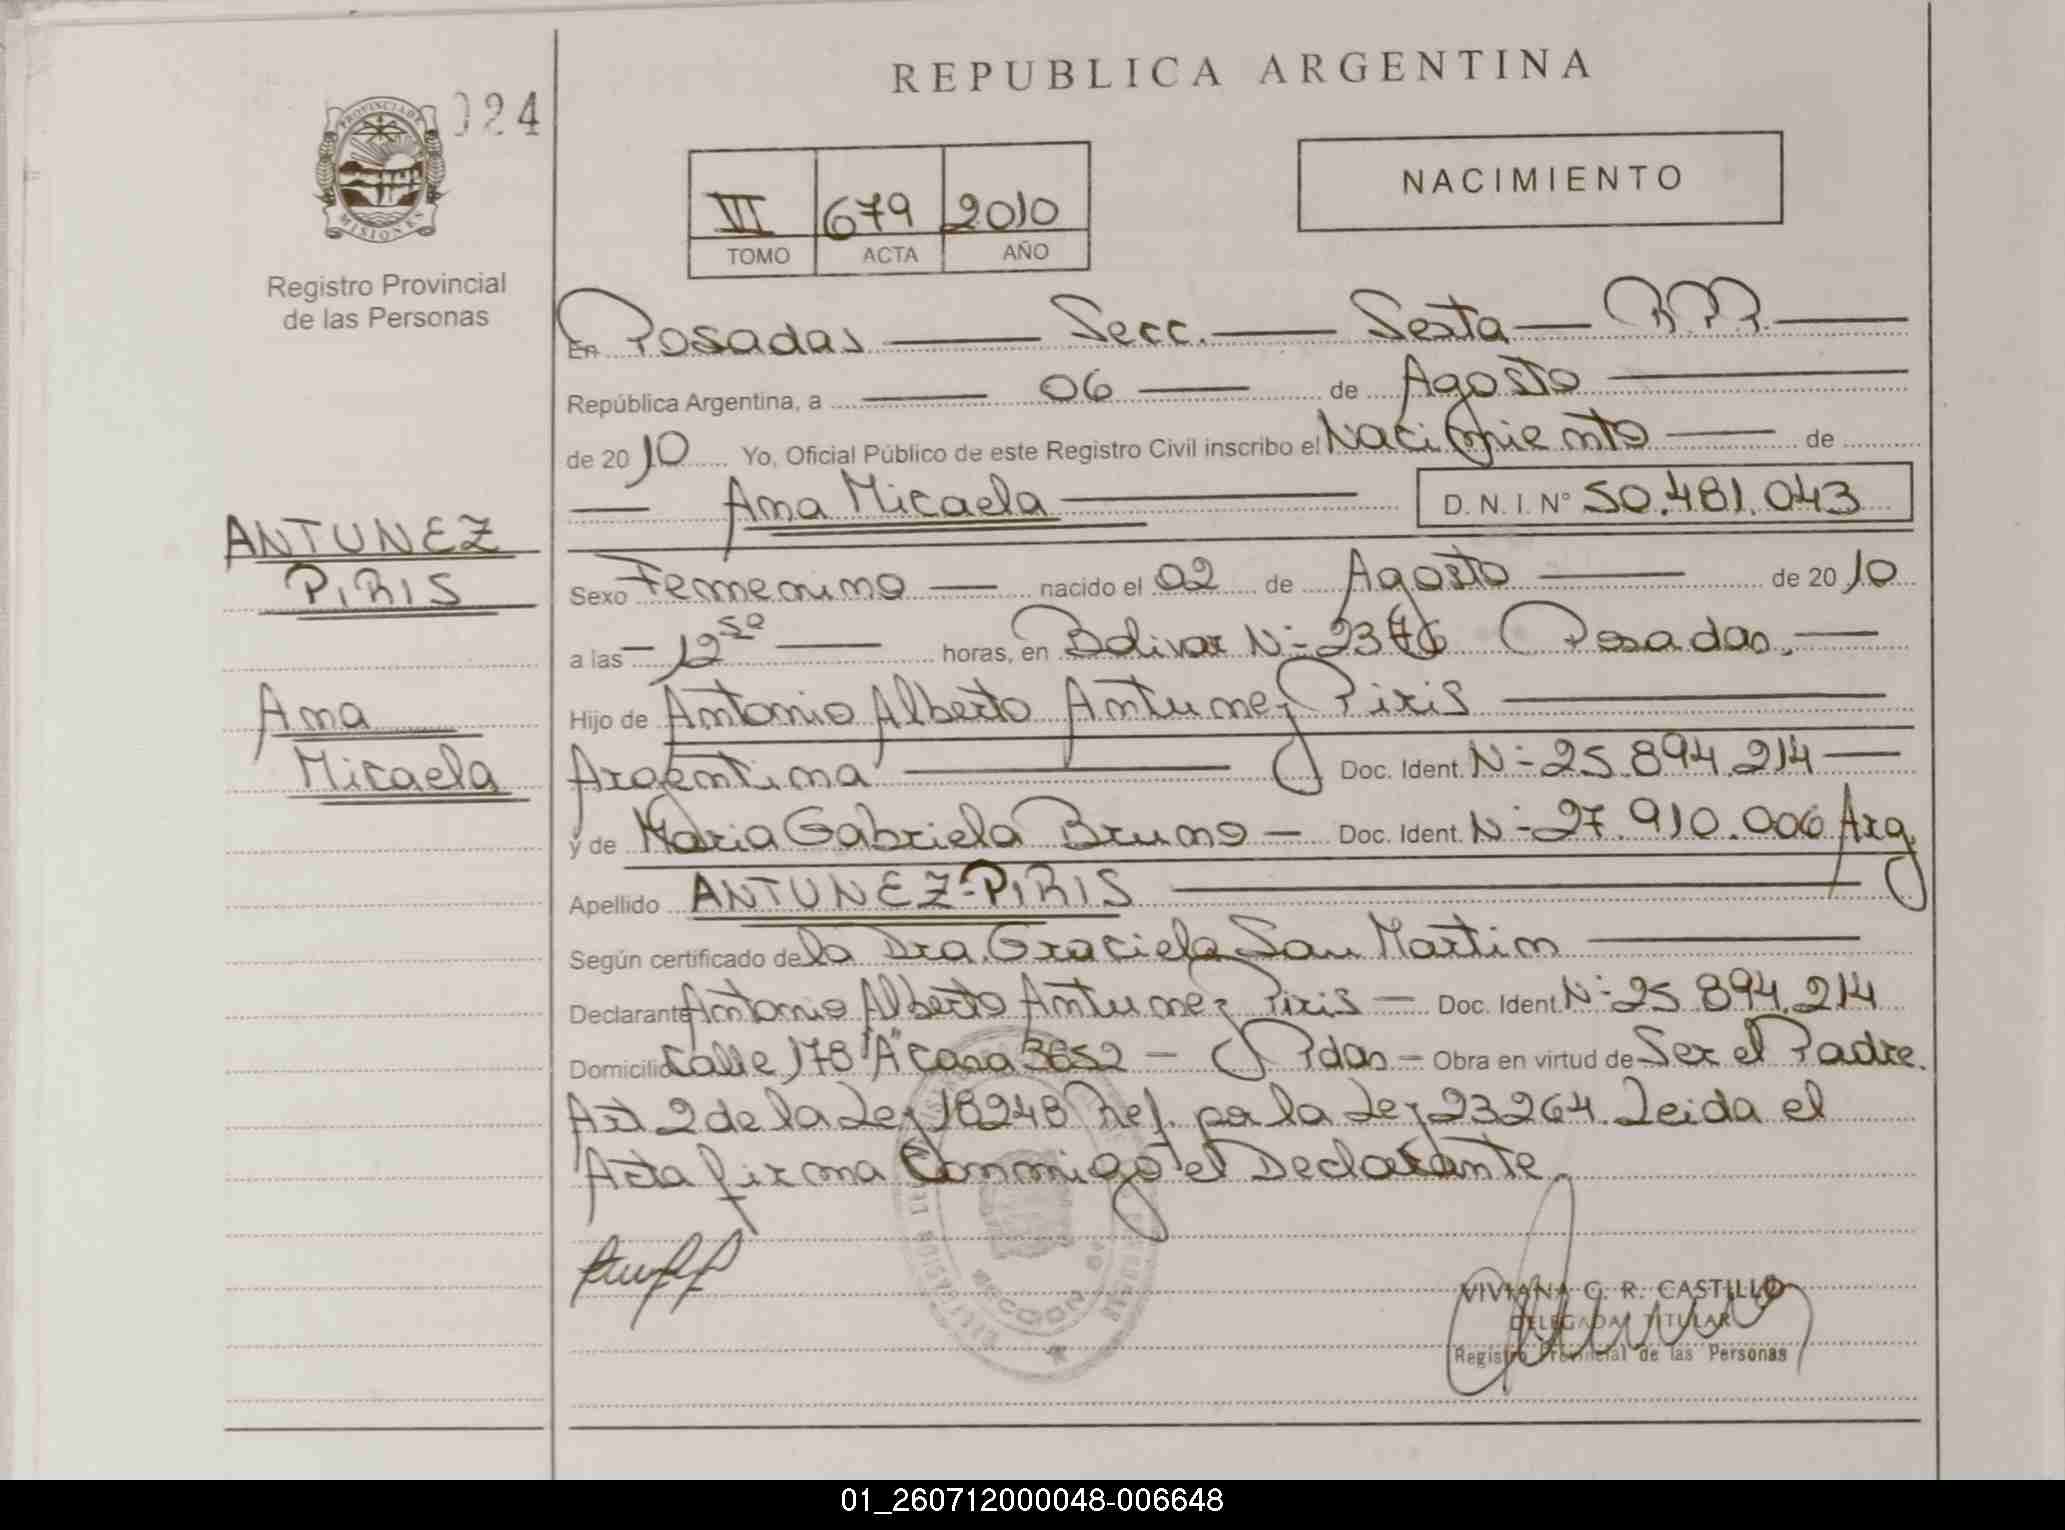 REPUBLICA ARGENTINA
024
PROVINCIA DE MISIONES
Registro Provincial
de las Personas
III 679 2010
TOMO ACTA AÑO
NACIMIENTO
En Posadas Secc. Sexta
República Argentina, a 06 de Agosto
de 2010 Yo, Oficial Público de este Registro Civil inscribo el Nacimiento de
Ana Micaela D. N. I. Nº 50.481.043
ANTUNEZ
PIRIS
Ana
Micaela
Sexo Femenino nacido el 02 de Agosto de 2010
a las 12⁵⁰ horas, en Bolivar Nº 2376 Posadas.
Hijo de Antonio Alberto Antunez Piris
Argentina Doc. Ident. Nº 25.894.214
y de Maria Gabriela Bruno Doc. Ident. Nº 27.910.006 Arg
Apellido ANTUNEZ-PIRIS
Según certificado de la Dra. Graciela San Martin
Declarante Antonio Alberto Antunez Piris Doc. Ident. Nº 25.894.214
Domicilio Calle 178 "A" Casa 3652 - Pdas - Obra en virtud de Ser el Padre.
Art 2 de la Ley 18248 Ref. por la Ley 23264. Leida el
Acta firma Conmigo el Declarante.
VIVIANA G. R. CASTILLO
DELEGADA TITULAR
Registro Provincial de las Personas
01_260712000048-006648